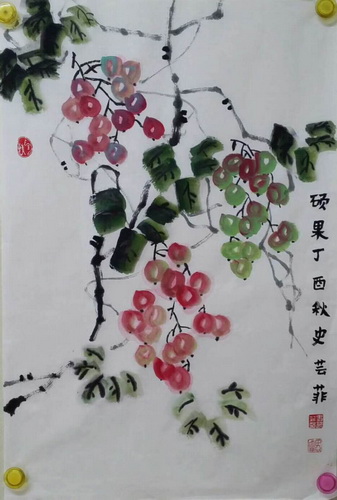 硕果丁酉秋史芸菲